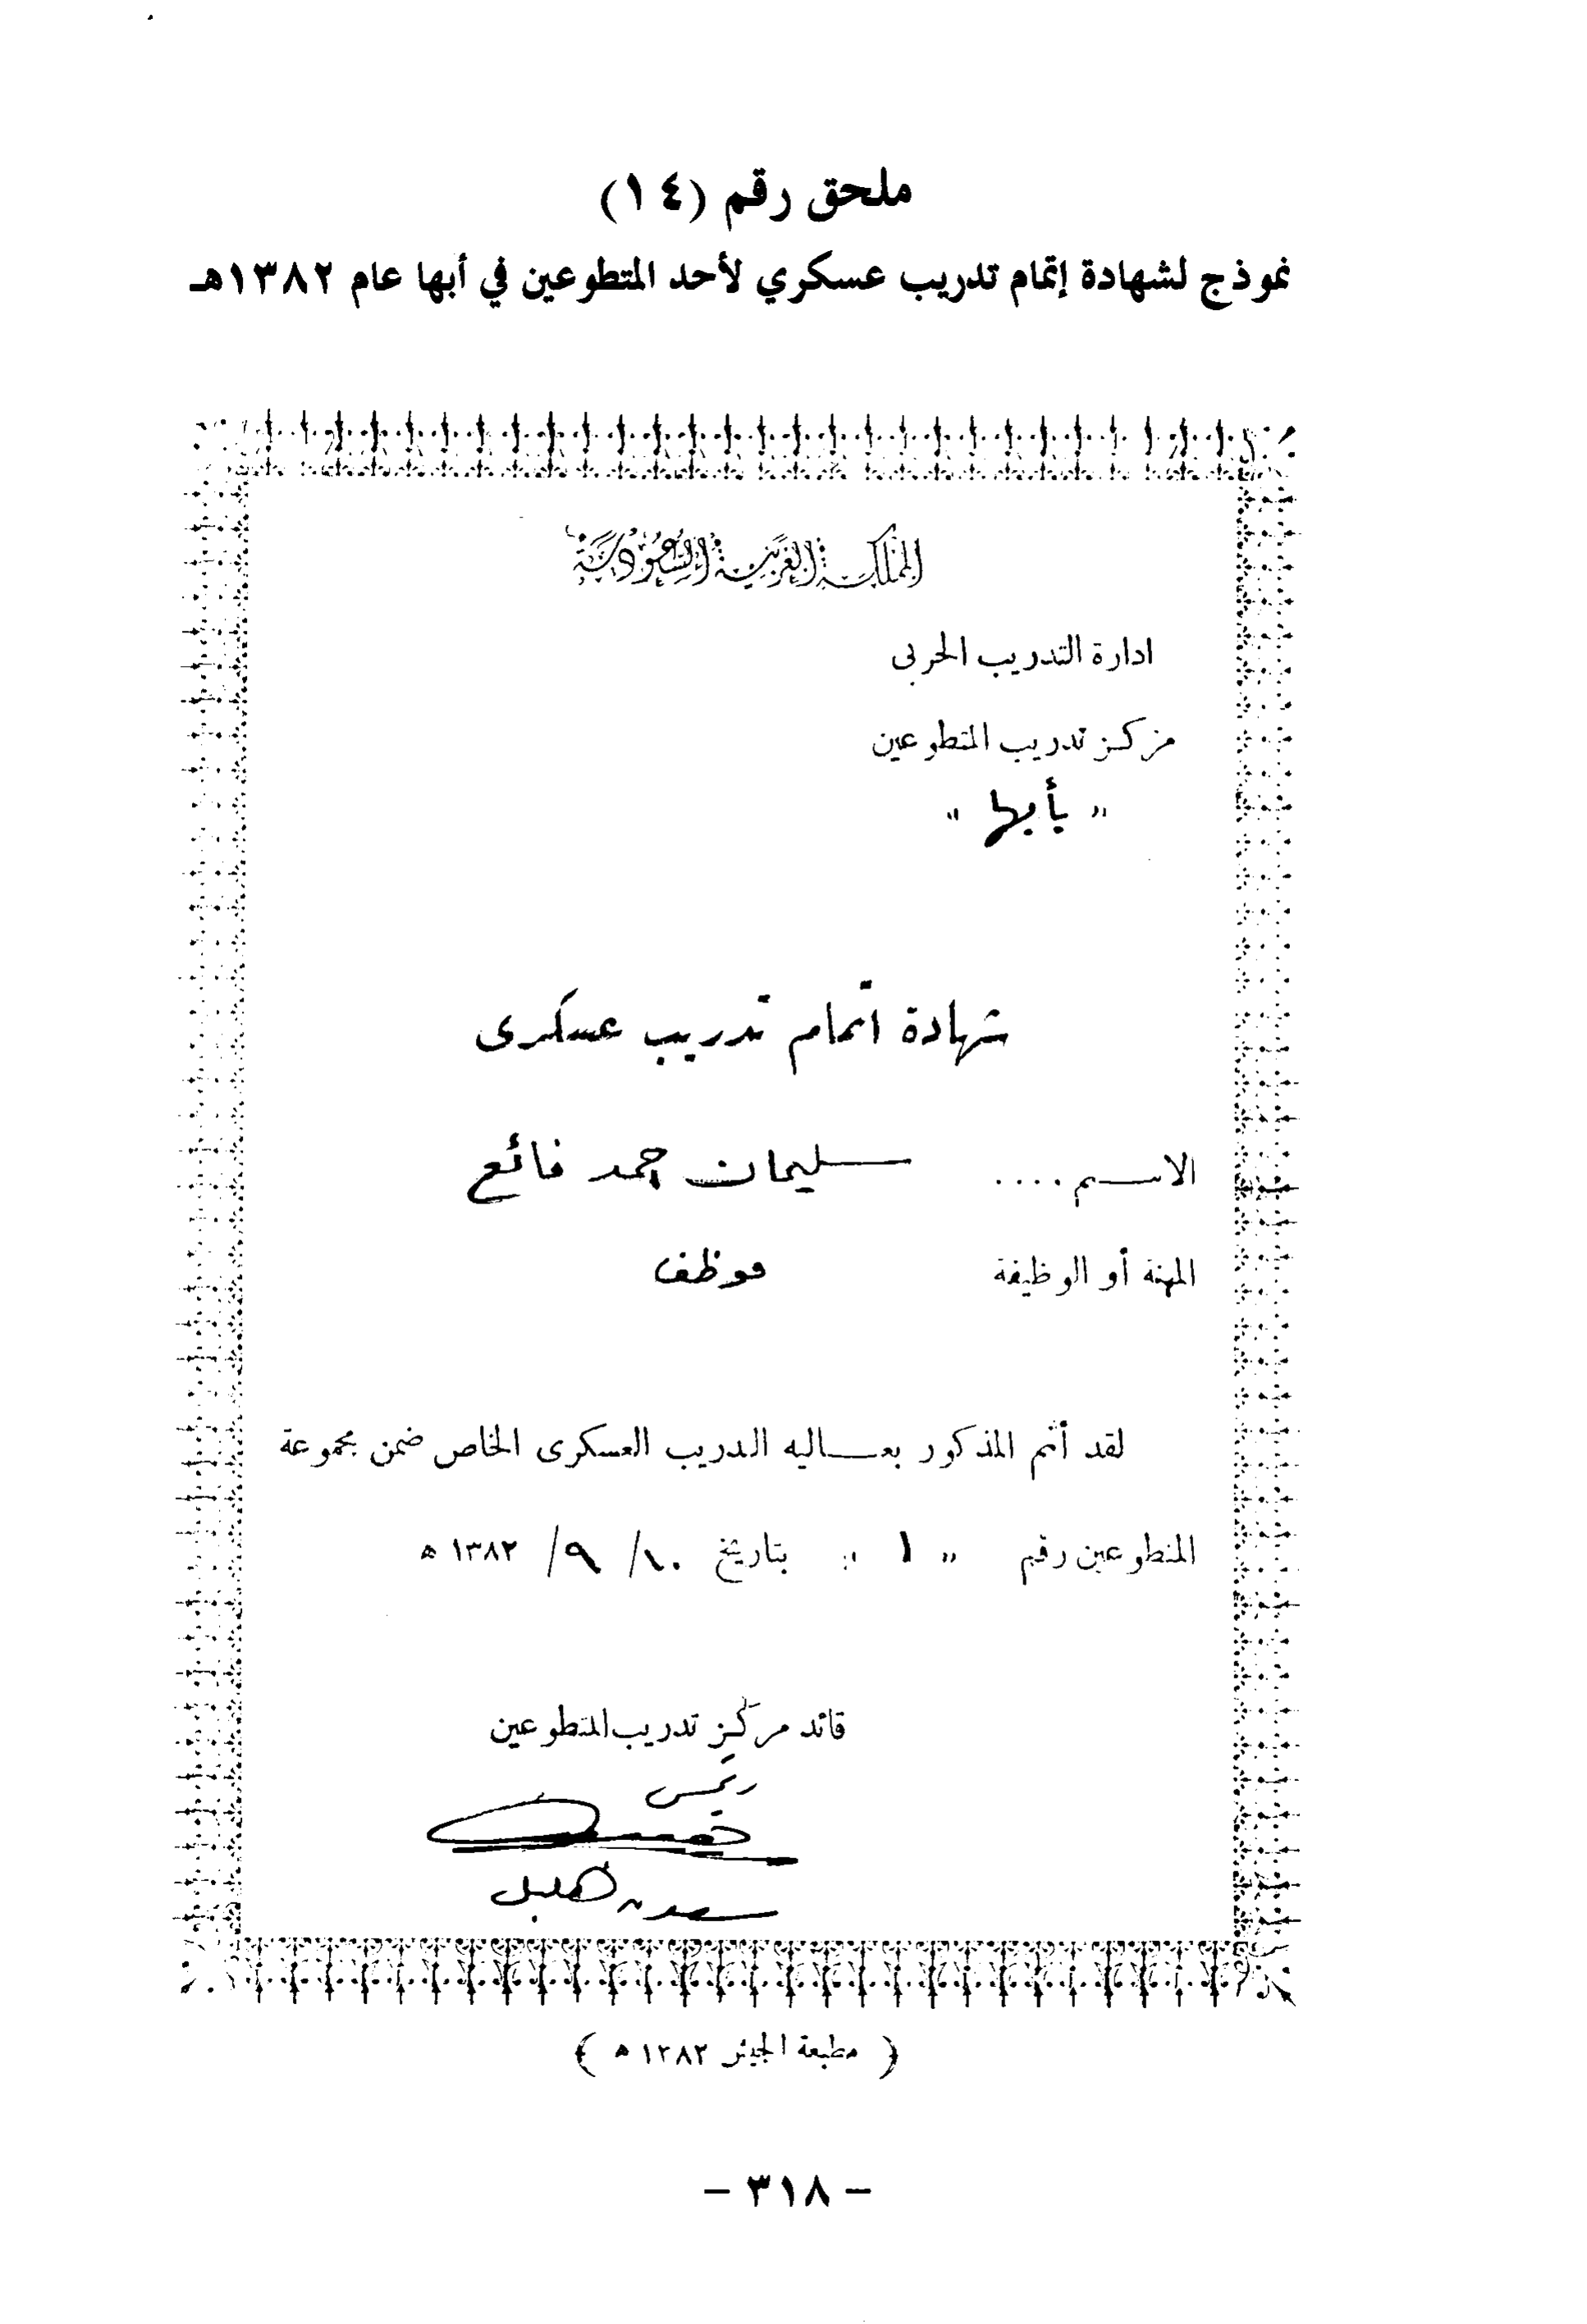 ملحق رقم (١٤)
نموذج لشهادة إتمام تدريب عسكري لأحد المتطوعين في أبها عام ١٣٨٢هـ
المملكة العربية السعودية
ادارة التدريب الحربى
مركز تدريب المتطوعين
" بأبها "
شهادة اتمام تدريب عسكرى
الاسم .... سليمان احمد فائع
المهنة أو الوظيفة موظف
لقد أتم المذكور بعاليه الدريب العسكرى الخاص ضمن مجموعة
المتطوعين رقم " ١ " بتاريخ ١٠/ ٩/ ١٣٨٢ ه
قائد مركز تدريب المتطوعين
رئيس
سعد هليل
( مطبعة الجيش ١٣٨٢ ه )
- ٣١٨ -